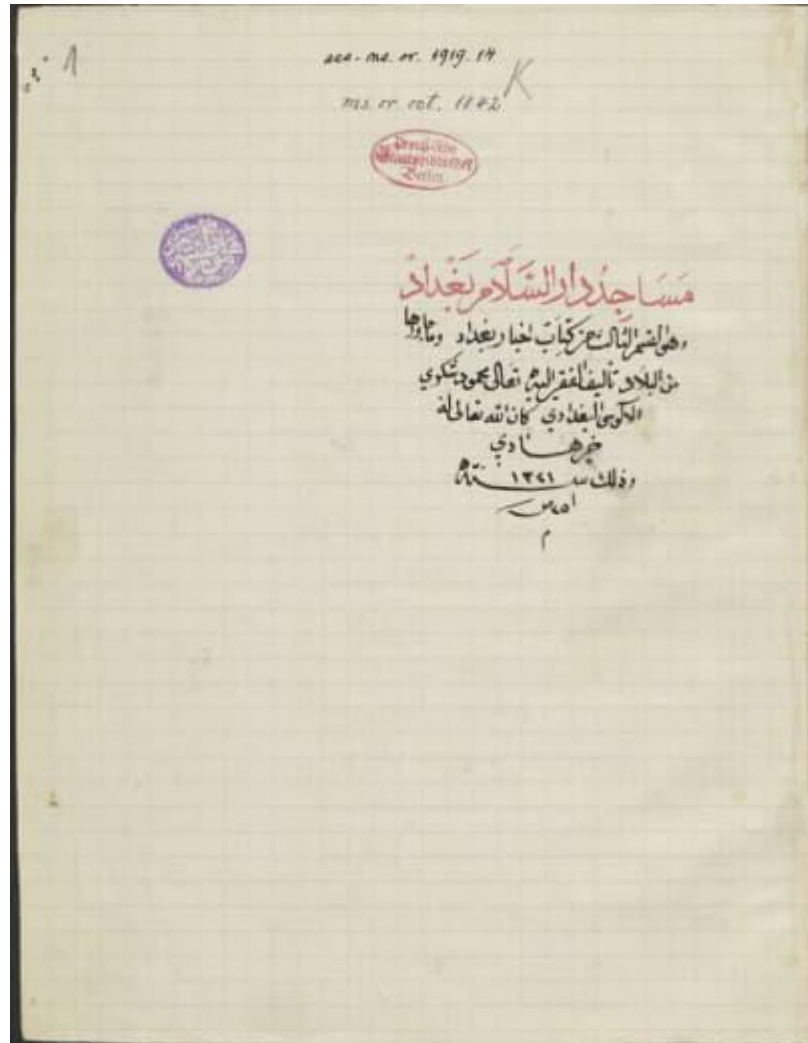 acc. ms. or. 1919. 14
K
ms. or. oct. 1842
Preußische
Staatsbibliothek
Berlin
مَسَاجِدُ دارِ السَّلَام بَغْدَاد
وهو القسم الثالث من كتاب اخبار بغداد وما جاورها
من البلاد تأليف الفقير اليه تعالى محمود شكري
الالوسي البغدادي كان الله تعالى له
خير هادي
وذلك سنة ١٣٢١
م